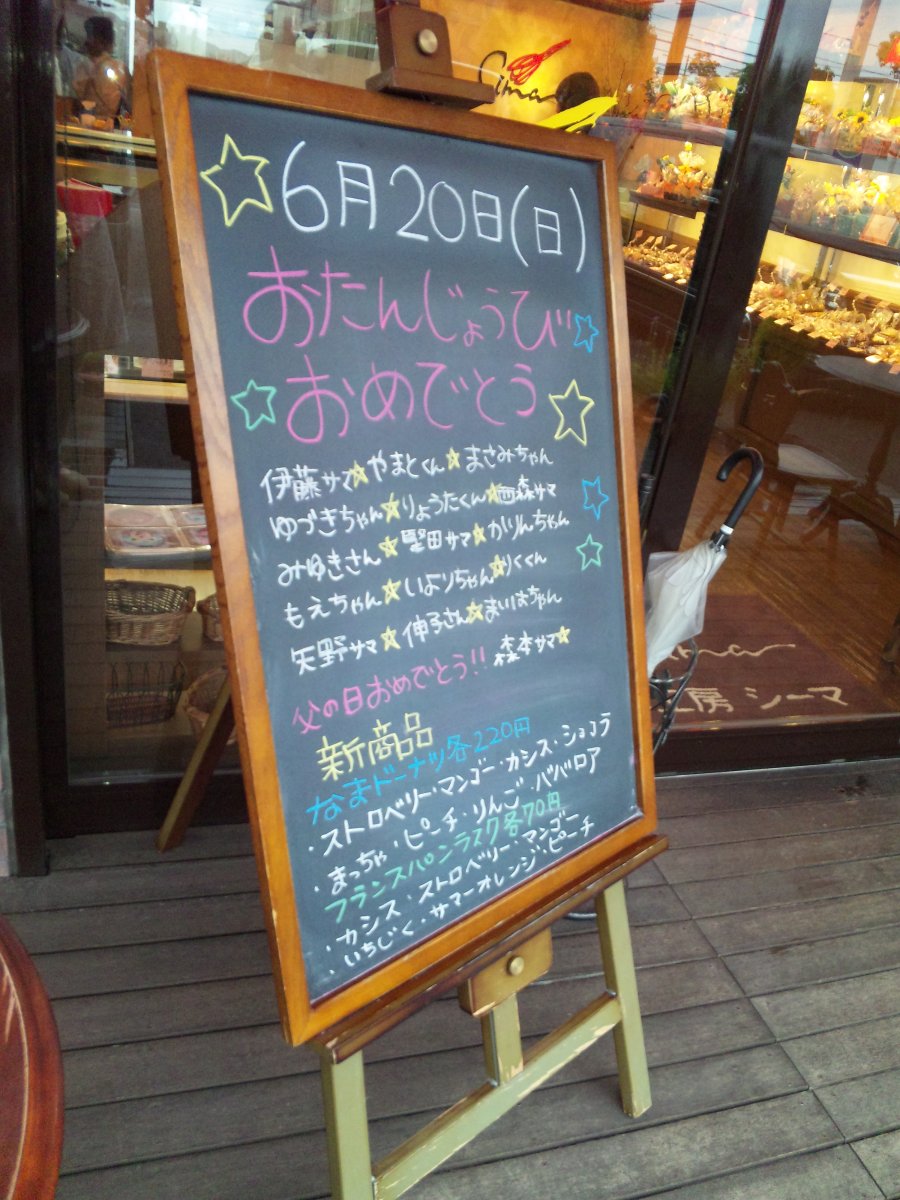 Cima
6月20日(日)
おたんじょうび
おめでとう
伊藤サマ★やまとくん★まさみちゃん
ゆづきちゃん★りょうたくん★西森サマ
みゆきさん★堅田サマ★かりんちゃん
もえちゃん★いよりちゃん★りくくん
矢野サマ★伸子さん★まいはちゃん
父の日おめでとう!! 森本サマ★
新商品
なまドーナツ各220円
・ストロベリー・マンゴー・カシス・ショコラ
・まっちゃ・ピーチ・りんご・ババロア
フランスパンラスク各70円
・カシス・ストロベリー・マンゴー
・いちじく・サマーオレンジ・ピーチ
房 シーマ